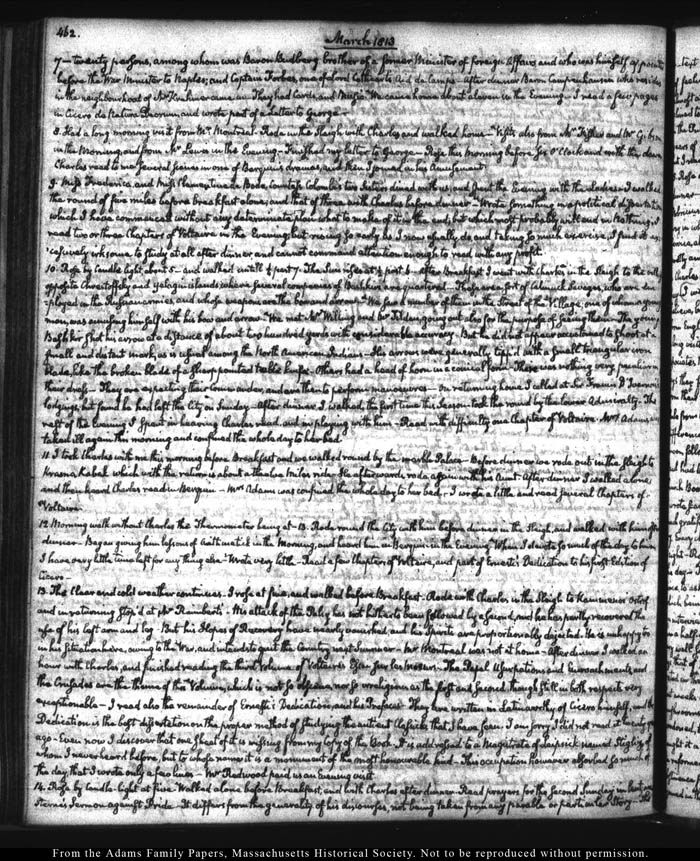 462.
March 1813
7 — twenty persons, among whom was Baron Budberg brother of a former Minister of foreign Affairs, and who was himself appointed
before the War Minister to Naples; and Captain Forbes, one of Lord Cathcart's Aid de Camps — After dinner Baron Campenhausen who resides
in the neighbourhood of Mr Krehmer came in — They had Cards, and Music. We came home about eleven in the Evening — I read a few pages
in Cicero de Natura Deorum, and wrote part of a letter to George —
8. Had a long morning visit from Mr Montreal. Rode in the Sleigh with Charles and walked home — Visits also from Mr Fisher and Mr
in the Morning, and from Mr Lewis in the Evening — Finished my letter to George — Rose this Morning before Six O'Clock and with the dawn
Charles read to me several scenes in one of Berquin's dramas, and then I joined in his Amusement.
9. Miss Frederica, and Miss Clementina de Bode, Countess Colombi's two Sisters dined with us, and spent the Evening with the Ladies — I walked
the round of five miles before breakfast alone; and that of three with Charles before dinner — Wrote something in a political disquisition
which I have commenced without any determinate plan what to make of it in the end, but which most probably will end in Nothing. I
read two or three Chapters of Voltaire in the Evening, but rising so early as I now usually do, and taking so much exercise, I find it
excessively irksome to study at all after dinner and cannot command attention enough to read with any profit.
10. Rose by Candle light, about 5 — and walked until ½ past 7. The Sun rises at ½ past 6 — After Breakfast I went with Charles in the Sleigh to the village
opposite Chrestoffsky and Yelagin islands where several companies of Bashkirs are quartered — These are a sort of Calmuck Savages, who are em-
ployed in the Russian armies, and whose weapons are the bow and arrow — We saw a number of them in the Street of the Village, one of whom a young
man, was amusing himself with his bow and arrow — We met Mr Willing and Mr Tilden, going out also for the purpose of seeing them — The young
Bashkir shot his arrow at a distance of about two hundred yards with considerable accuracy — But he did not appear accustomed to shoot at a
small and distant mark, as is usual among the North American Indians — His arrows were generally tipp'd with a small triangular iron
blade, like the broken blade of a sharp pointed table knife. Others had a head of horn in a conical form. There was nothing very peculiar in
their dress — They are expecting their Commander, and are then to perform manoeuvres — On returning home I called at Sir Francis D'Ivernois's
lodgings, but found he had left the City on Sunday — After dinner I walked, the first time this Season took the round by the lower Admiralty. The
rest of the evening I spent in hearing Charles read, and in playing with him — Read with difficulty one Chapter of Voltaire. Mrs Adams was
taken ill again this morning and confined the whole day to her bed.
11. I took Charles with me this morning before Breakfast and we walked round by the marble Palace — Before dinner we rode out in the Sleigh to
Krasnoi Kabak which with the return is about a twelve miles ride. He afterwards rode again with his Aunt — After dinner I walked alone
and then heard Charles read in Berquin — Mrs Adams was confined the whole day to her bed. I wrote a little and read several Chapters of
Voltaire.
12. Morning walk without Charles the Thermometer being at –13. Rode round the City with him before dinner in the Sleigh, and walked with him after
dinner — Began giving him lessons of Arithmetick in the Morning, and heard him in Berquin in the Evening. When I devote so much of the day to him
I have very little time left for any thing else — Wrote very little — Read a few Chapters of Voltaire, and part of Ernesti's Dedication to his first Edition of
Cicero —
13. The Clear and cold weather continues. I rose at five, and walked before Breakfast. Rode with Charles, in the Sleigh to Kammenoi Ostrof
and in returning stop'd at Mr Raimbert's. His attack of the Palsy has not hitherto been followed by a second, and he has partly recovered the
use of his left arm and leg. But his Hopes of Recovery have nearly vanished, and his Spirits are proportionally dejected. He is unhappy too
in his situation here, owing to the War, and intends to quit the Country next Summer — Mr Montreal was not at home — After dinner I walked an
hour with Charles, and finished reading the third Volume of Voltaire's Essai sur les Moeurs. The Papal Usurpations and Encroachments, and
the Crusades are the theme of this Volume, which is not so obscene, nor so irreligious as the first and second though still in both respects very
exceptionable — I read also the remainder of Ernesti's Dedication, and his Preface. They are written in Latin worthy of Cicero himself, and the
Dedication is the best dissertation on the proper method of studying the antient Classicks that I have seen. I am sorry I did not read it twenty years
ago — Even now I discover that one sheet of it is missing from my copy of the Book. It is addressed to a Magistrate of Leipsick named Stiglitz, of
whom I never heard before, but to whose name it is a monument of the most honourable kind — This occupation however absorbed so much of
the day that I wrote only a few lines — Mr Redwood paid us an evening visit.
14. Rose by Candle-light at five. Walked alone before Breakfast, and with Charles after dinner — Read prayers for the second Sunday in Lent, and
Sterne's Sermon against Pride — It differs from the generality of his discourses, not being taken from any parable or particular Story — The
From the Adams Family Papers, Massachusetts Historical Society. Not to be reproduced without permission.